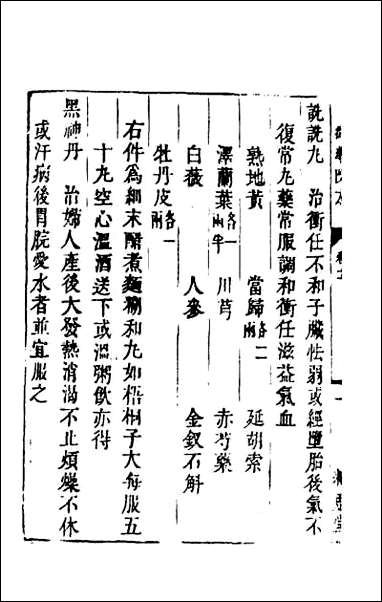 詵詵丸　治衝任不和子臟怯弱或經墮胎後氣不
復常丸藥常服調和衝任滋益氣血
熟地黃　當歸各二兩　延胡索
澤蘭葉各一兩半　川芎　赤芍藥
白薇　人參　金釵石斛
牡丹皮各一兩
右件爲細末醋煮麵糊和丸如梧桐子大每服五
十丸空心溫酒送下或溫粥飮亦得
黑神丹　治婦人產後大發熱消渴不止煩燥不休
或汗病後胃脘愛水者並宜服之